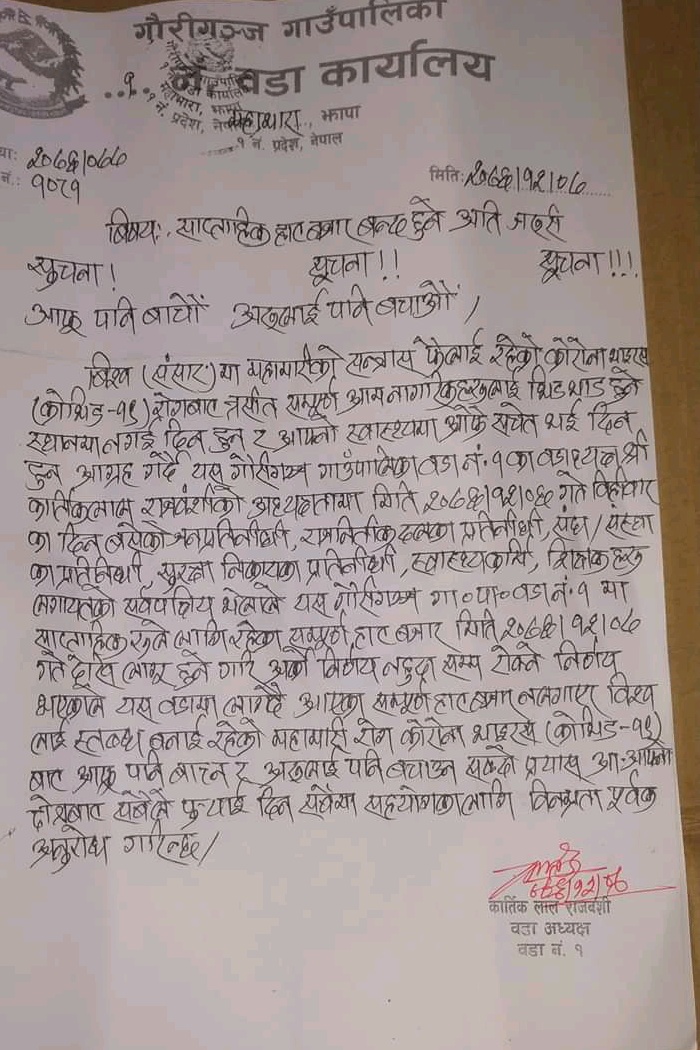 गौरीगञ्ज गाउँपालिका
१ नं. वडा कार्यालय
महाभारा, झापा
१ नं. प्रदेश, नेपाल
२०७६/०७७
नं.: १०८१
मिति: २०७६/१२/०७
विषय: साप्ताहिक हाट बजार बन्द हुने अति जरुरी
सुचना! सूचना!! सूचना!!!
आफू पनि बाचौं अरुलाई पनि बचाऔं /
विश्व (संसार) मा महामारीको सन्त्रास फैलाई रहेको कोरोना भाइरस
(कोभिड-१९) रोगबाट त्रसीत सम्पूर्ण आम नागरिकहरुलाई भिडभाड हुने
स्थानमा नगई दिन हुन र आफ्नो स्वास्थ्यमा आफै सचेत भई दिन
हुन आग्रह गर्दै यस गौरीगञ्ज गाउँपालिका वडा नं. १ का वडाध्यक्ष श्री
कार्तिकलाल राजवंशीको अध्यक्षतामा मिति २०७६/१२/०६ गते विहीवार
का दिन बसेको जनप्रतिनीधी, राजनितीक दलका प्रतिनीधी, संघ/संस्था
का प्रतिनिधी, सुरक्षा निकायका प्रतिनीधी, स्वास्थ्यकर्मी, शिक्षक हरु
लगायतको सर्वपक्षिय भेलाले यस गौरीगञ्ज गा०पा० वडा नं. १ मा
साप्ताहिक रुले लागि रहेका सम्पूर्ण हाट बजार मिति २०७६/१२/०७
गते देखि लागू हुने गरि अर्को निर्णय नहुदा सम्म रोक्ने निर्णय
भएकोले यस वडामा लाग्दै आएका सम्पूर्ण हाट बजार नलगाएर विश्व
लाई स्तब्ध बनाई रहेको महामारी रोग कोरोना भाइरस (कोभिड-१९)
बाट आफू पनि बाच्न र अरुलाई पनि बचाउन सक्दो प्रयास आ-आफ्नो
बाट सबैले पुर्‍याई दिन सबैमा सहयोगका लागि विनम्रता पूर्वक
अनुरोध गरिन्छ /
कार्तिक लाल राजवंशी
वडा अध्यक्ष
वडा नं. १